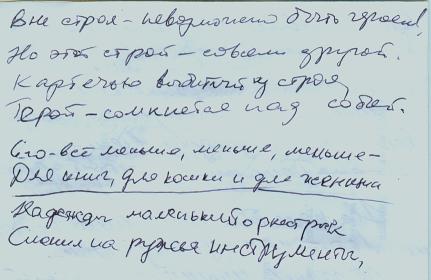 Вне строя - невозможно быть героем,
Но этот строй - совсем другой.
Картечью выбитый из строя
Герой - сомкнётся над собой.
Его - всё меньше, меньше, меньше -
Для книг, для кошки и для женщин
Надежды маленький оркестрик
Сменил на ружья инструменты,